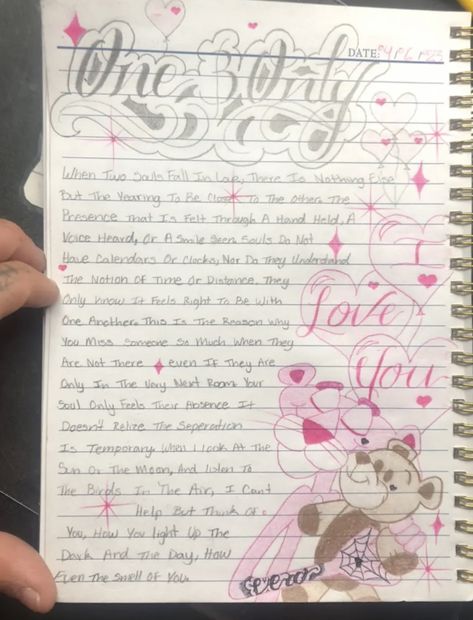 One & Only
DATE:
When Two Souls Fall In Love, There Is Nothing Else
But The Yearing To Be Close To The Other. The
Presence That Is Felt Through A Hand Held, A
Voice Heard, Or A Smile Seen. Souls Do Not
Have Calendars Or Clocks, Nor Do They Understand
The Notion Of Time Or Distance. They
Only Know It Feels Right To Be With
One Another. This Is The Reason Why
You Miss Someone So Much When They
Are Not There even If They Are
Only In The Very Next Room. Your
Soul Only Feels Their Absence It
Doesn't Relize The Seperation
Is Temporary. When I look At The
Sun Or The Moon, And listen To
The Birds In The Air, I Cant
Help But Think Of
You, How You light Up The
Dark And The Day, How
Even The Smell Of You.
I
Love
You